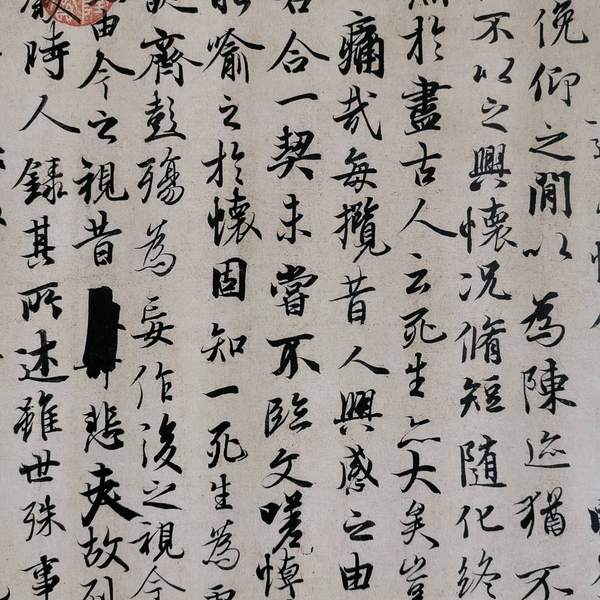 俛仰之閒以為陳迹猶不
不以之興懷況脩短隨化終
於盡古人云死生亦大矣豈
痛哉每攬昔人興感之由
合一契未嘗不臨文嗟悼
喻之於懷固知一死生為
齊彭殤為妄作後之視今
由今之視昔悲夫故列
時人錄其所述雖世殊事